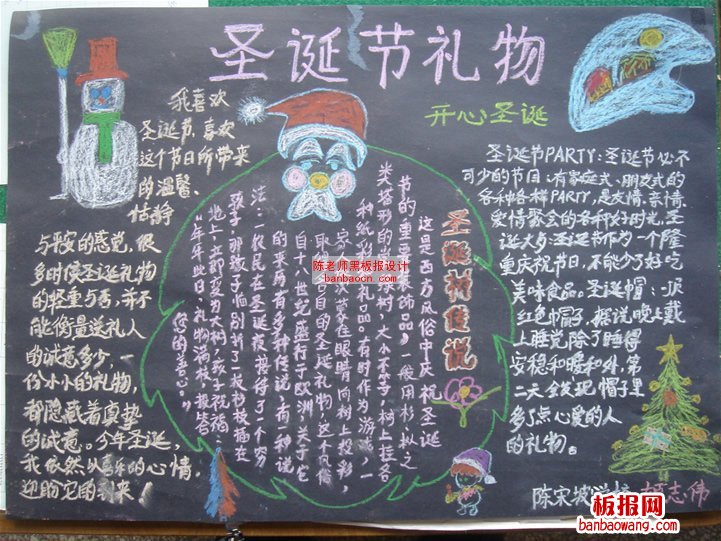 圣诞节礼物
开心圣诞
我喜欢
圣诞节,喜欢
这个节日所带来
的温馨、
恬静
与平安的感觉,很
多时候圣诞礼物
的轻重与否,并不
能衡量送礼人
的诚意多少,一
份小小的礼物,
都隐藏着真挚
的诚意。今年圣诞,
我依然以喜乐的心情,
迎盼它的到来!
圣诞树传说
这是西方风俗中庆祝圣诞
节的重要装饰品》一般用杉、
类塔形的小树,大小不等,树上挂各
种纸彩 礼品。有时作为游戏,一
家 蒙在眼睛向树上投彩,
取 自的圣诞礼物,这个风俗
自十八世纪盛行于欧洲,关于它
的来历有多种传说:有一种说
法:一农民在圣诞夜接待了个穷
孩子,那孩子临别折了一枝杉枝插在
地上,立即变为大树,孩子祝福:
“年年此日,礼物满枝,报答
您的善心。”
圣诞节PARTY:圣诞节必不
可少的节目,有家庭式、朋友式的
各种各样PARTY,是友情、亲情、
爱情聚会的各种好时光。圣
诞大餐:圣诞节作为一个隆
重庆祝节日,不能少了好吃
美味食品。圣诞帽:一顶
红色帽子,据说晚上戴
上睡觉,除了睡得
安稳和暖和外,第
二天会发现,帽子里
多了点心爱的人
的礼物。
陈宋坡学校 志伟
陈老师黑板报设计
banbaoon.cn
板报网
banbaowang.com